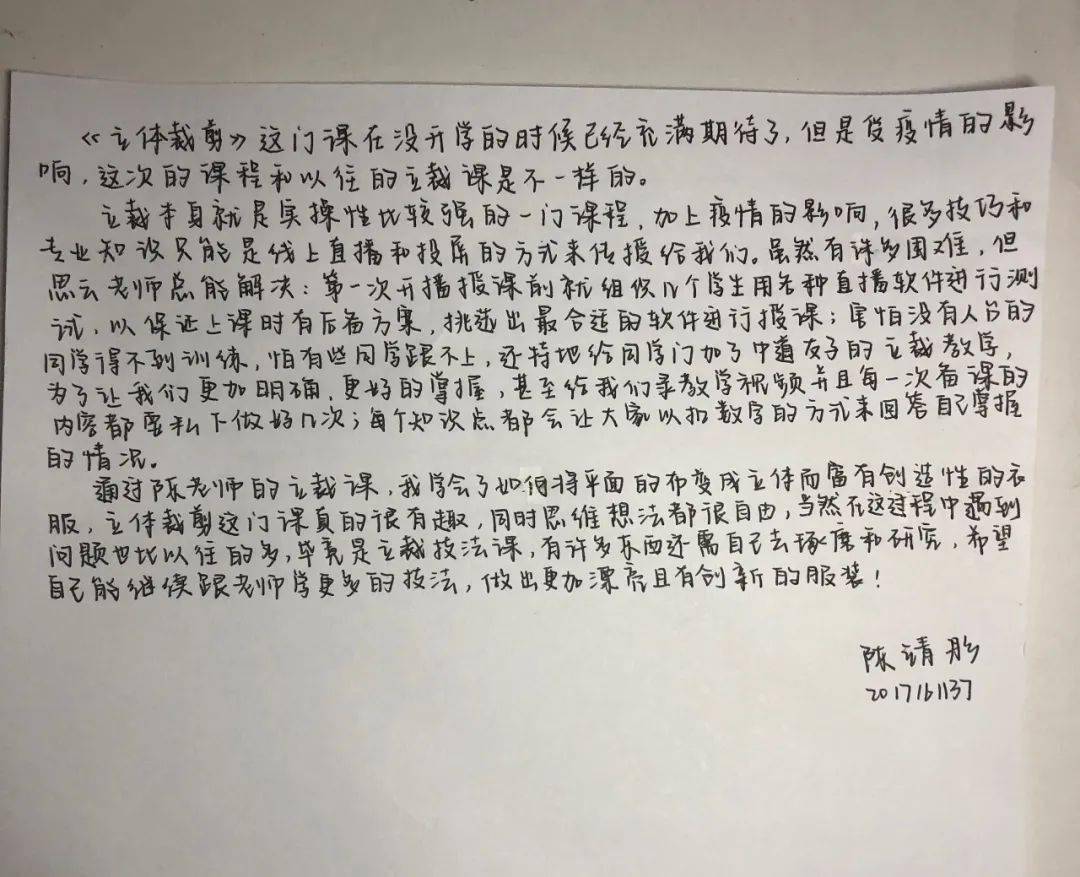 《立体裁剪》这门课在没开学的时候已经充满期待了,但是受疫情的影
响,这次的课程和以往的立裁课是不一样的。
立裁本身就是实操性比较强的一门课程,加上疫情的影响,很多技巧和
专业知识只能是线上直播和投屏的方式来传授给我们。虽然有许多困难,但
思云老师总能解决:第一次开播授课前就组织几个学生用各种直播软件进行测
试,以保证上课时有后备方案,挑选出最合适的软件进行授课;害怕没有人台的
同学得不到训练,怕有些同学跟不上,还特地给同学门加了中道友子的立裁教学,
为了让我们更加明确,更好的掌握,甚至给我们录教学视频并且每一次备课的
内容都要私下做好几次;每个知识点都会让大家以扣数字的方式来回答自己掌握
的情况。
通过陈老师的立裁课,我学会了如何将平面的布变成立体而富有创造性的衣
服,立体裁剪这门课真的很有趣,同时思维想法都很自由,当然在这过程中遇到
问题也比以往的多,毕竟是立裁技法课,有许多东西还需自己去琢磨和研究,希望
自己能继续跟老师学更多的技法,做出更加漂亮且有创新的服装!
陈靖彤
2017161137